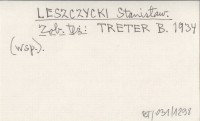 LESZCZYCKI Stanisław.
Zob. też: TRETER B. 1934
(wsp.).